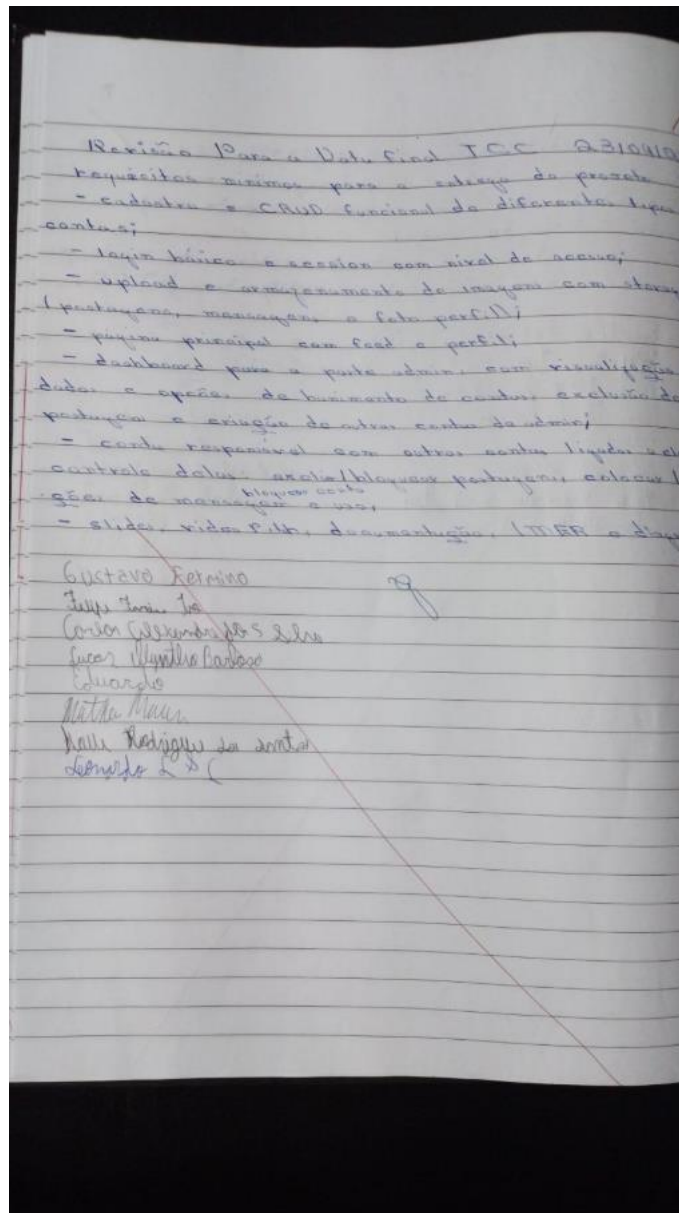 Revisão Para a Data Final TCC 23/04/2
requisitos mínimos para a entrega do projeto
- cadastro e CRUD funcional de diferentes tipos
contas;
- login básico e session com nível de acesso;
- upload e armazenamento de imagens com storag
(postagens, mensagens e foto perfil);
- página principal com feed e perfil;
- dashboard para a parte admin, com visualização
dados e opções de banimento de contas, exclusão de
postagens e criação de outras contas de admin;
- conta responsável com outras contas ligadas a el
controle delas: exclui/bloquear postagens, colocar l
bloquear conta
ções de mensagem e uso,
- slides, vídeo Pith, documentação, MER e diag
Gustavo
Felipe
Carlos Alexandre
Lucas Barboso
Eduardo
Rodrigues dos Santos
Leonardo L S C